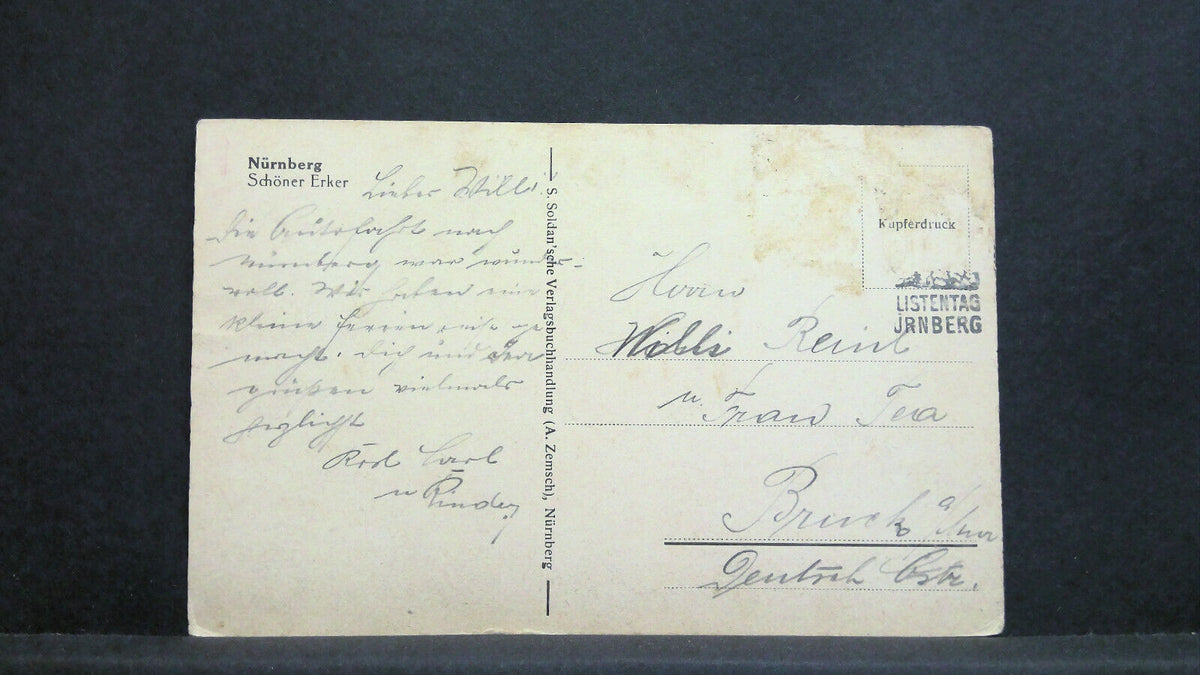 Nürnberg
Schöner Erker
Lieber Willi
Die Autofahrt nach
Nürnberg war wunder-
voll. Wir haben eine
kleine Ferienreise ge
macht. Dich und
grüßen vielmals
herzlichst
Carl
u Kinder
S. Soldan'sche Verlagsbuchhandlung (A. Zemsch), Nürnberg
Kupferdruck
LISTENTAG
JRNBERG
Herrn
Willi
u. Frau Tea
Bruck a/Mur
Deutsch Östr.